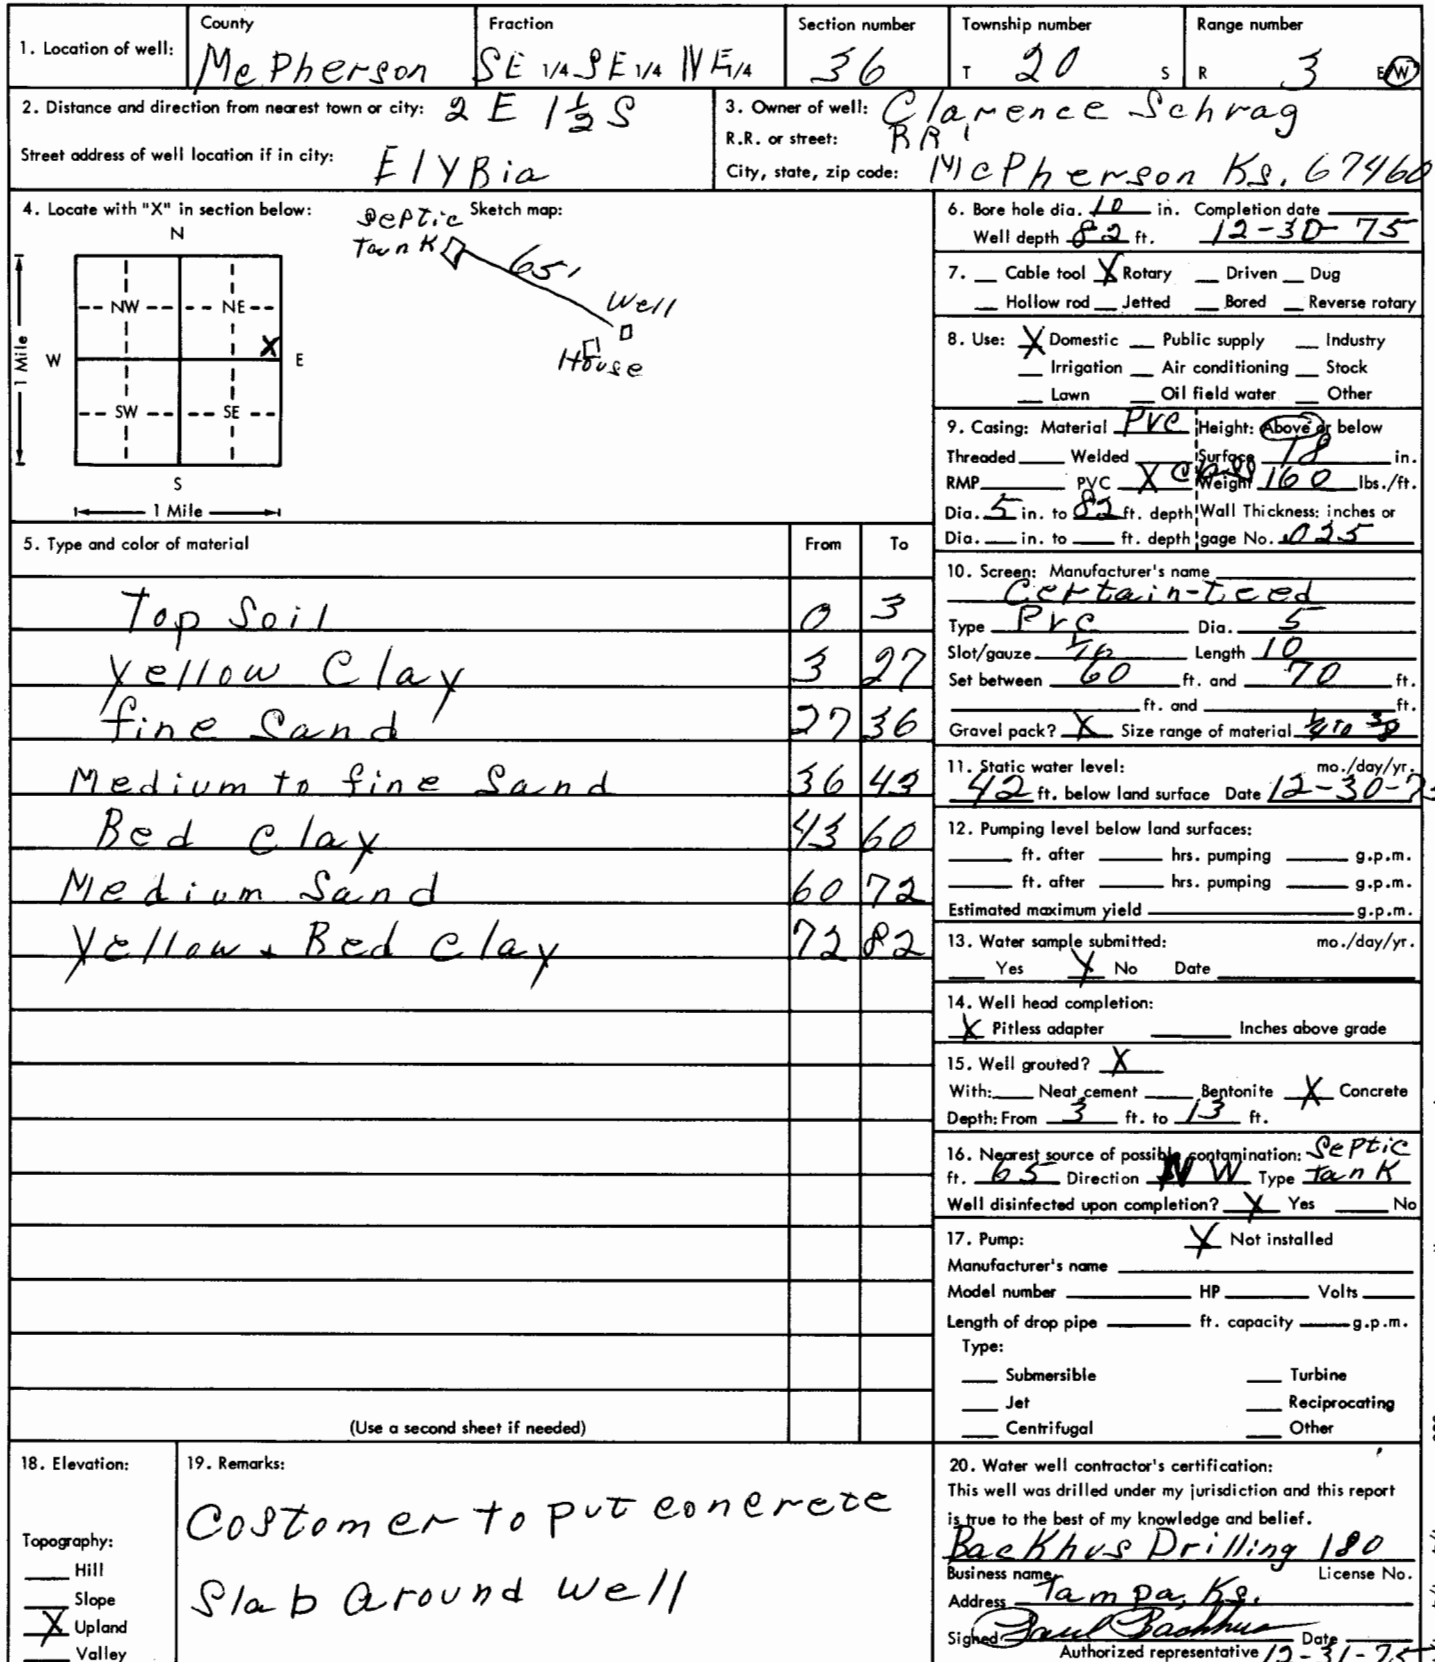 1. Location of well: County McPherson Fraction SE 1/4 SE 1/4 NE 1/4 Section number 36 Township number T 20 S Range number R 3 E/W
2. Distance and direction from nearest town or city: 2 E 1½ S
Street address of well location if in city: ElyBia
3. Owner of well: Clarence Schrag
R.R. or street: RR 1
City, state, zip code: McPherson Ks. 67460
4. Locate with "X" in section below:
N
NW NE
X
W E
SW SE
S
1 Mile
1 Mile
Sketch map:
Septic
Tank
65'
Well
House
5. Type and color of material From To
Top Soil 0 3
Yellow Clay 3 27
fine Sand 27 36
Medium to fine Sand 36 43
Red Clay 43 60
Medium Sand 60 72
Yellow + Red Clay 72 82
(Use a second sheet if needed)
6. Bore hole dia. 10 in. Completion date
Well depth 82 ft. 12-30-75
7. Cable tool X Rotary Driven Dug
Hollow rod Jetted Bored Reverse rotary
8. Use: X Domestic Public supply Industry
Irrigation Air conditioning Stock
Lawn Oil field water Other
9. Casing: Material PVC Height: Above or below
Threaded Welded Surface 18 in.
RMP PVC X Class Weight 160 lbs./ft.
Dia. 5 in. to 82 ft. depth Wall Thickness: inches or
Dia. in. to ft. depth gage No.
10. Screen: Manufacturer's name
Certain-teed
Type PVC Dia. 5
Slot/gauze 1/16 Length 10
Set between 60 ft. and 70 ft.
ft. and ft.
Gravel pack? X Size range of material
11. Static water level: mo./day/yr.
42 ft. below land surface Date 12-30-75
12. Pumping level below land surfaces:
ft. after hrs. pumping g.p.m.
ft. after hrs. pumping g.p.m.
Estimated maximum yield g.p.m.
13. Water sample submitted: mo./day/yr.
Yes X No Date
14. Well head completion:
X Pitless adapter Inches above grade
15. Well grouted? X
With: Neat cement Bentonite X Concrete
Depth: From 3 ft. to 13 ft.
16. Nearest source of possible contamination: Septic
ft. 65 Direction NW Type tank
Well disinfected upon completion? X Yes No
17. Pump: X Not installed
Manufacturer's name
Model number HP Volts
Length of drop pipe ft. capacity g.p.m.
Type:
Submersible Turbine
Jet Reciprocating
Centrifugal Other
18. Elevation:
Topography:
Hill
Slope
X Upland
Valley
19. Remarks:
Costomer to put concrete
Slab around well
20. Water well contractor's certification:
This well was drilled under my jurisdiction and this report
is true to the best of my knowledge and belief.
Backhus Drilling 180
Business name License No.
Address Tampa, Ks.
Signed Paul Backhus Date
Authorized representative 12-31-75